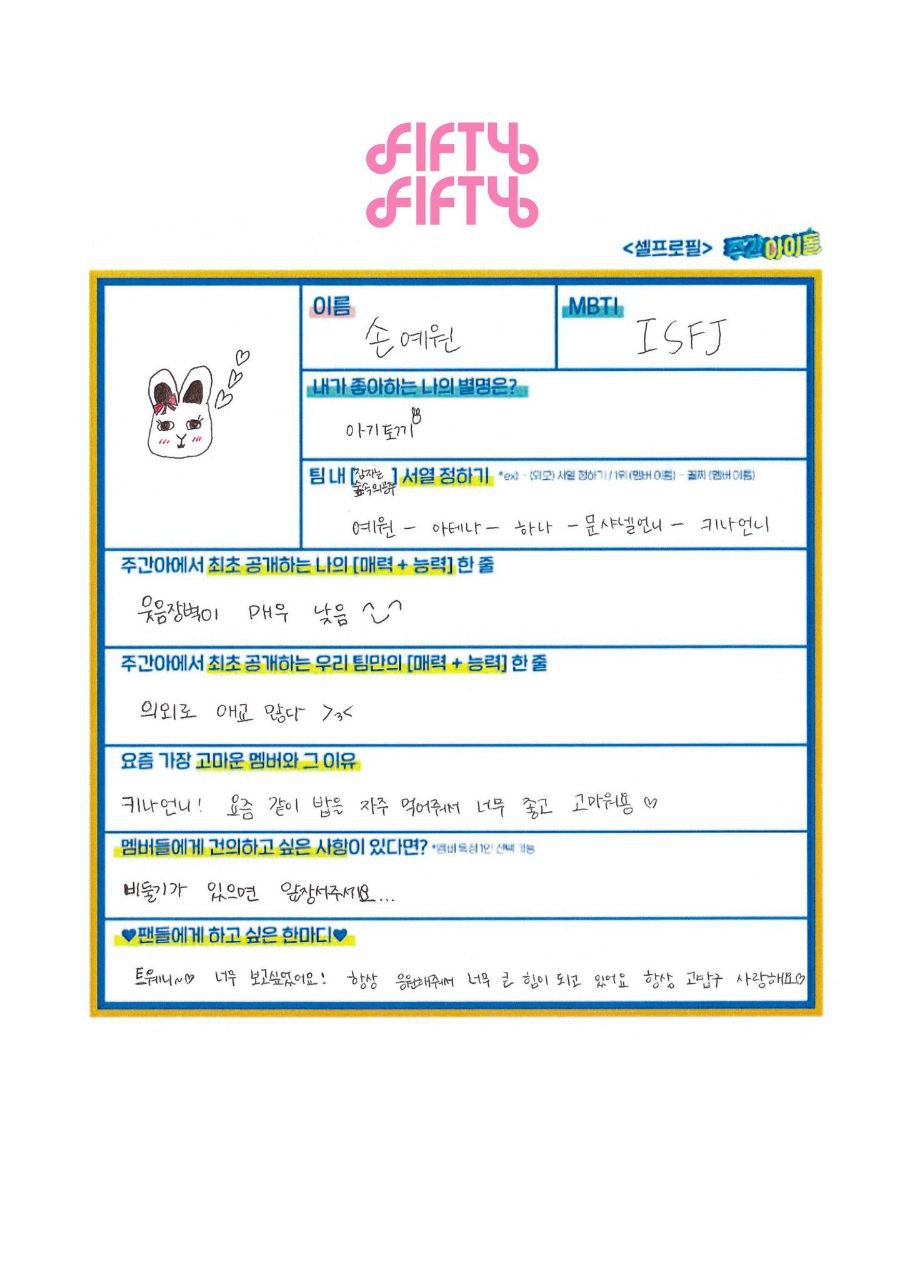 FIFTY
FIFTY
<셀프로필> 주간아이돌
이름
손예원
MBTI
ISFJ
내가 좋아하는 나의 별명은?
아기토끼
팀 내 [잠자는 숲속의공주] 서열 정하기 *ex) - (외모) 서열 정하기 / 1위 (멤버 이름) - 꼴찌 (멤버 이름)
예원 - 아테나 - 하나 - 문샤넬언니 - 키나언니
주간아에서 최초 공개하는 나의 [매력 + 능력] 한 줄
웃음장벽이 매우 낮음 ^_^
주간아에서 최초 공개하는 우리 팀만의 [매력 + 능력] 한 줄
의외로 애교 많다 >3<
요즘 가장 고마운 멤버와 그 이유
키나언니! 요즘 같이 밥을 자주 먹어줘서 너무 좋고 고마워용 ♡
멤버들에게 건의하고 싶은 사항이 있다면? *멤버 특정 1인 선택 가능
비둘기가 있으면 앞장서주세요...
♥팬들에게 하고 싶은 한마디♥
트웨니~♡ 너무 보고싶었어요! 항상 응원해줘서 너무 큰 힘이 되고 있어요 항상 고맙구 사랑해요♡